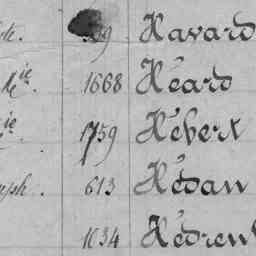 Havard
Mie 1668 Héard
ie 1759 Hébert
eph. 613 Hédan
1034 Hédren